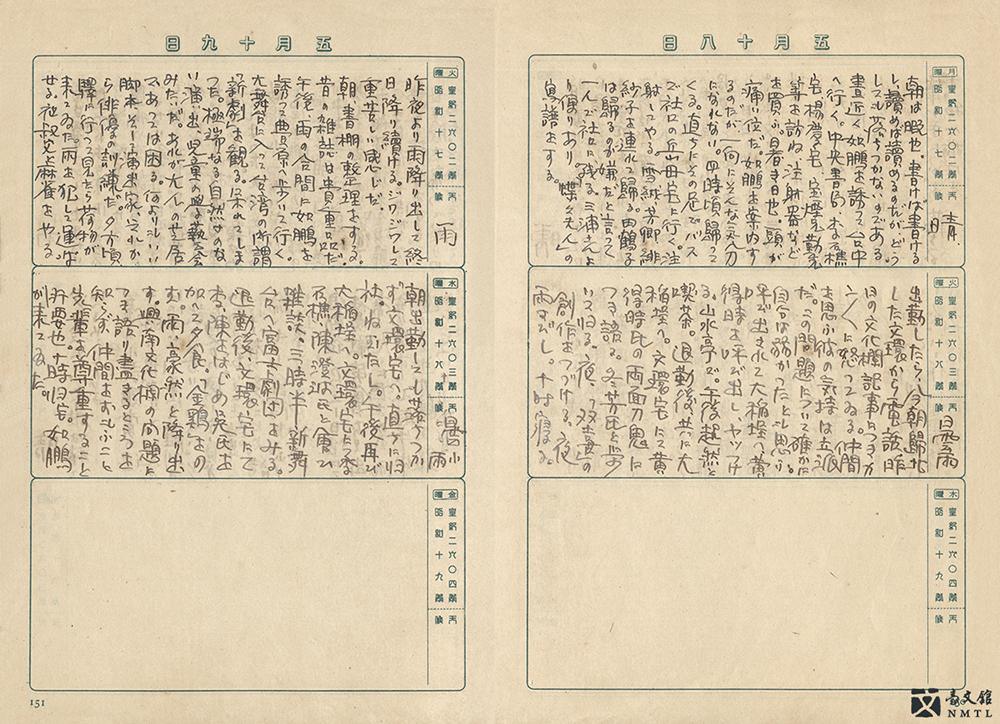 五月十八日
月曜 皇紀二六〇二 昭和十七 天候 晴
朝は暇也。書けば書ける
し讀めば讀めるのだが、どう
しても落ちつかない。のである
晝近く如鵬を誘って台中
へ行く。中央書局、
宅、楊 宅、宝煙、勤先
等を訪ね、 など
を買ふ。暑き日也。頭が
痛い位だ。如鵬を案内す
るのだが一向にそんな気分
になれない。四時頃歸って
くる。直ちにその足でバス
で社口の丘山母宅に行く。注
射してやる。雪絨、芳卿、緋
紗子を連れて歸る。田鶴子
は歸るのが嫌だと言って
一人で社口に残る。三浦さんよ
り便りあり、「蝶々夫人」の
樂譜を
火曜 皇紀二六〇三 昭和十八 天候 曇雨
出勤したら、今朝歸北
した文環から電話、昨
日の文化欄記事につき、カ
ンカンに怒ってゐる。仲間
を思ふ彼の気持は立派
だ。この問題について確かに
自分は弱かったと思ふ。
早く出されて大稻埕へ、黄
得時を呼び出し、ヤッつけ
る。山水亭で。午後超然と
喫茶。退勤後、共に大
稻埕へ。文環宅にて黄
得時氏の両面刀鬼に
つき語る。
帰る。夜、「双喜」の
創作をつづける。夜
雨 し。十時寝る。
水曜 皇紀二六〇四 昭和十九 天候
五月十九日
火曜 皇紀二六〇二 昭和十七 天候 雨
昨夜より雨降り出して終
日降り續ける。ジワジワして
重苦しい感じだ。
朝、書棚の整理をする。
昔の雑誌は貴重品だ。
午後、雨の合間に如鵬を
誘って豊原へ歩いて行く。
大舞台に入って台湾の所謂
新劇を観る。呆れてしま
った。極端なる自然 のな
い演出、児童の學藝会
みたいだ。あれが大人の芝居
であっては困る。何よりもいい
脚本、そして演出家、それか
ら俳優の訓練だ。夕方頃
驛に行って見たら荷物が
来てゐた。雨を犯して運ば
せる。祖叔父と麻雀をやる
水曜 皇紀二六〇三 昭和十八 天候 曇小雨
朝出勤しても落ちつか
ず、文環宅へ。直ぐに歸
社。ねむたし。午後再び
大稻埕へ。文環宅につき
石橋、陳澄波氏と會ひ
雑談。三時半、新舞
台へ富士劇団をみる。
退勤後、文環宅にて
陳 はじめ呉氏を
加へて夕食。「金鶏」をの
む。雨、豪然と降り出
す。興南文化欄の問題に
つき語り盡きるところを
知らず、仲間をむすぶこと
先輩を尊重すること
が要也。十時歸宅。如鵬
が来てゐた。
金曜 皇紀二六〇四 昭和十九 天候
151
臺文館
NMTL